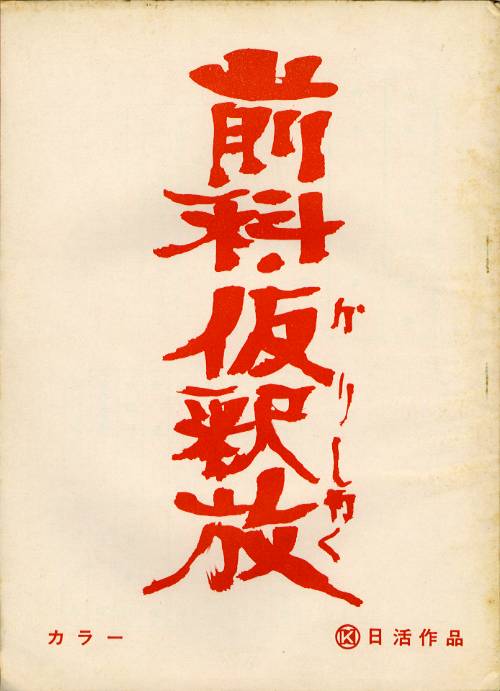 前科・仮釈放
かりしゃく
カラー
Ⓚ日活作品